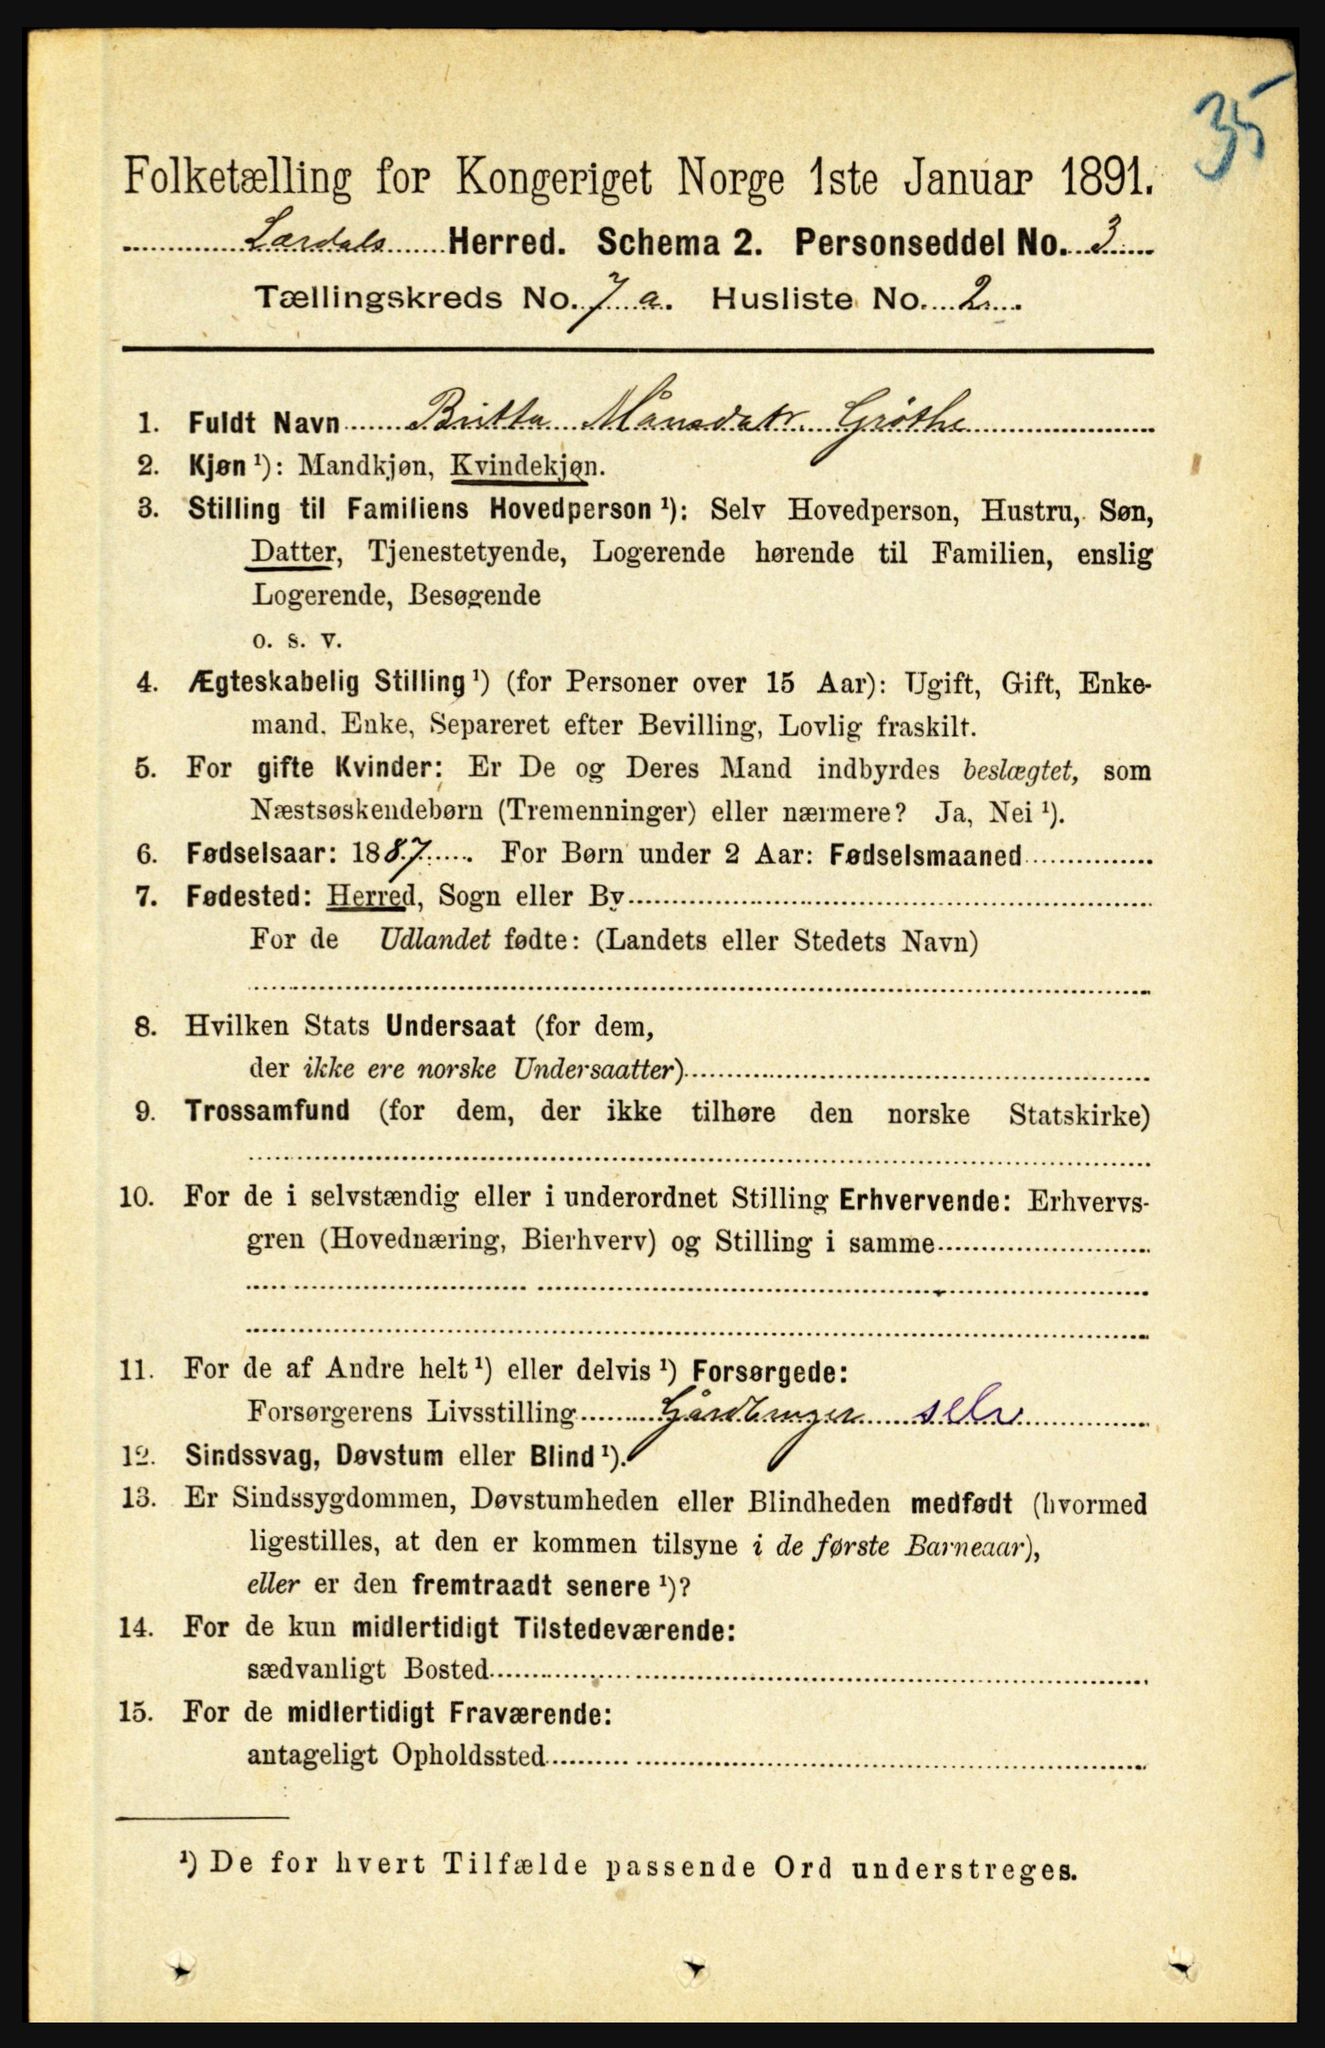 35
Folketælling for Kongeriget Norge 1ste Januar 1891.
Lærdals Herred. Schema 2. Personseddel No. 3
Tællingskreds No. 7 a. Husliste No. 2
1. Fuldt Navn Britta Månsdatr. Grøthe
2. Kjøn ¹): Mandkjøn, Kvindekjøn.
3. Stilling til Familiens Hovedperson ¹): Selv Hovedperson, Hustru, Søn,
Datter, Tjenestetyende, Logerende hørende til Familien, enslig
Logerende, Besøgende
o. s. v.
4. Ægteskabelig Stilling ¹) (for Personer over 15 Aar): Ugift, Gift, Enke-
mand, Enke, Separeret efter Bevilling, Lovlig fraskilt.
5. For gifte Kvinder: Er De og Deres Mand indbyrdes beslægtet, som
Næstsøskendebørn (Tremenninger) eller nærmere? Ja, Nei ¹).
6. Fødselsaar: 1887. For Børn under 2 Aar: Fødselsmaaned
7. Fødested: Herred, Sogn eller By
For de Udlandet fødte: (Landets eller Stedets Navn)
8. Hvilken Stats Undersaat (for dem,
der ikke ere norske Undersaatter)
9. Trossamfund (for dem, der ikke tilhøre den norske Statskirke)
10. For de i selvstændig eller i underordnet Stilling Erhvervende: Erhvervs-
gren (Hovednæring, Bierhverv) og Stilling i samme
11. For de af Andre helt ¹) eller delvis ¹) Forsørgede:
Forsørgerens Livsstilling Gårdbruger selv
12. Sindssvag, Døvstum eller Blind ¹).
13. Er Sindssygdommen, Døvstumheden eller Blindheden medfødt (hvormed
ligestilles, at den er kommen tilsyne i de første Barneaar),
eller er den fremtraadt senere ¹)?
14. For de kun midlertidigt Tilstedeværende:
sædvanligt Bosted
15. For de midlertidigt Fraværende:
antageligt Opholdssted
¹) De for hvert Tilfælde passende Ord understreges.